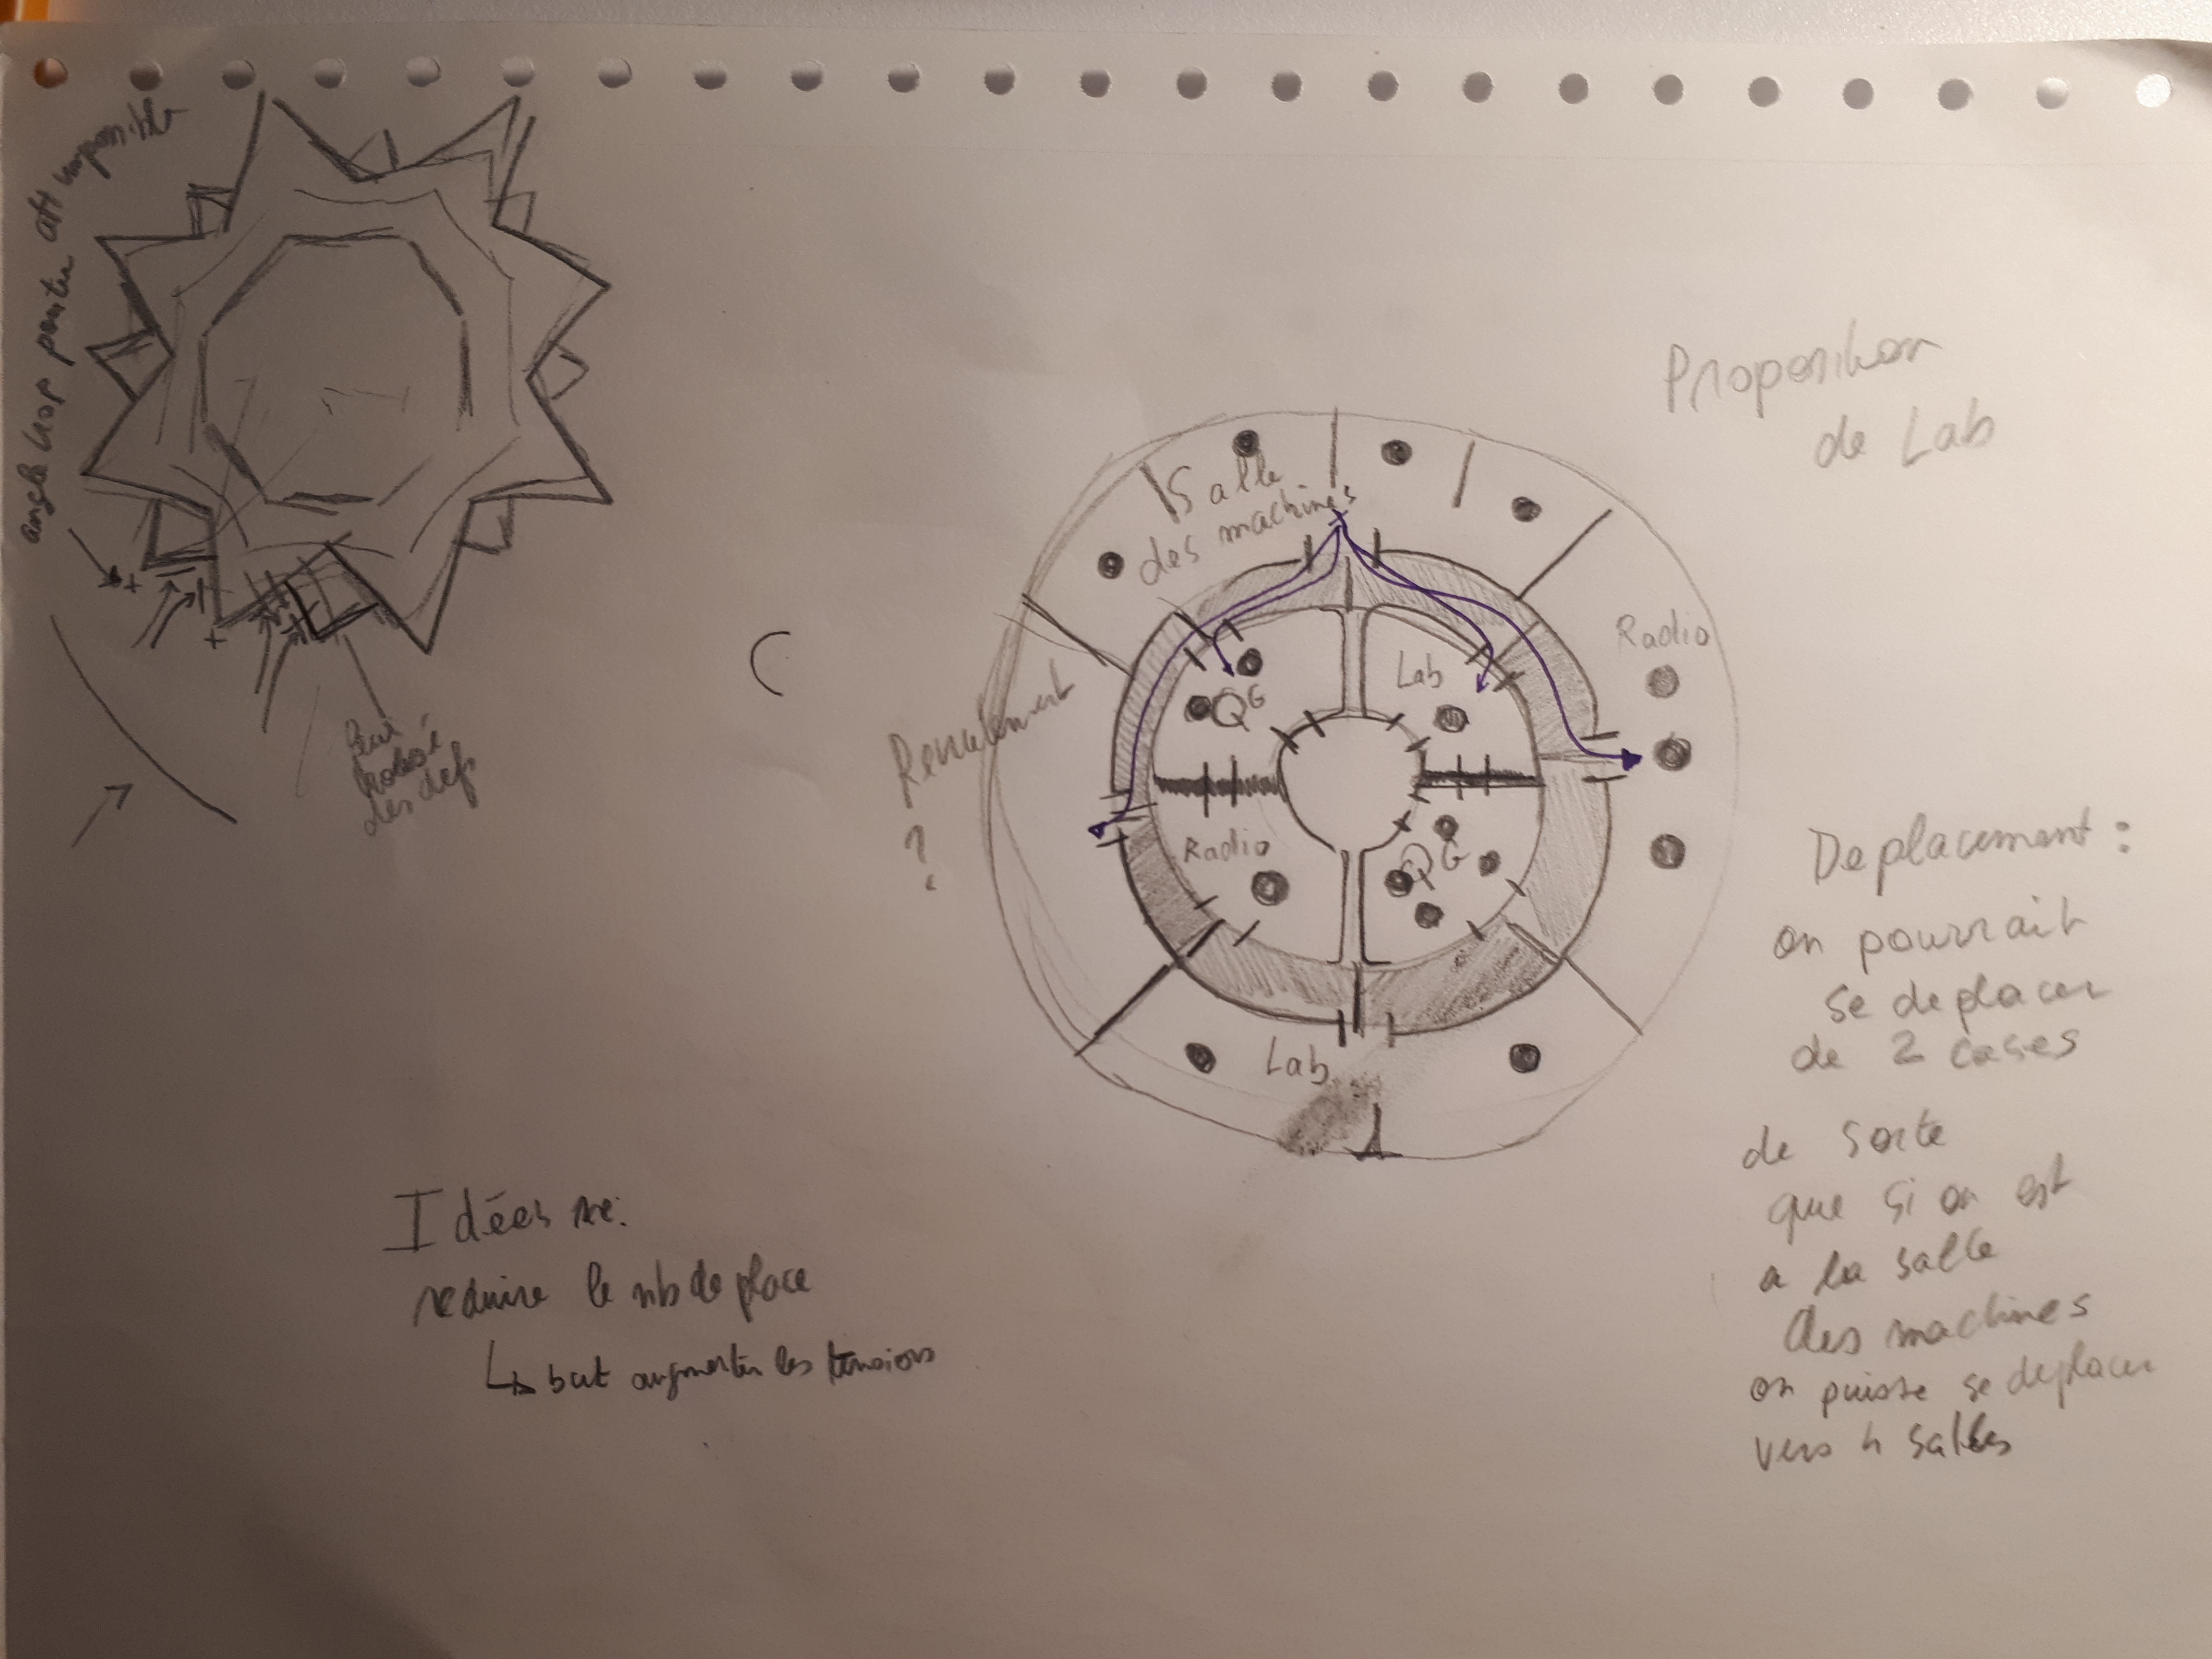 angle trop pointu att impossible
des def
Proposition
de Lab
Salle
des machines
Radio
Lab
QG
Ravitaillement
?
Radio
QG
Lab
Deplacement :
on pourrait
se deplacer
de 2 cases
de sorte
que si on est
a la salle
des machines
on puisse se deplacer
vers 4 salles
Idées
reduire le nb de place
↳ but augmenter les tensions